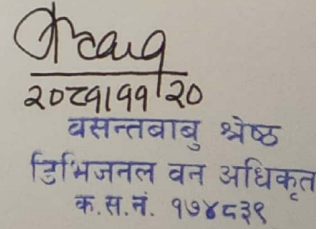 २०८१।११।२०
वसन्तबाबु श्रेष्ठ
डिभिजनल वन अधिकृत
क.स.नं. १७४८३९